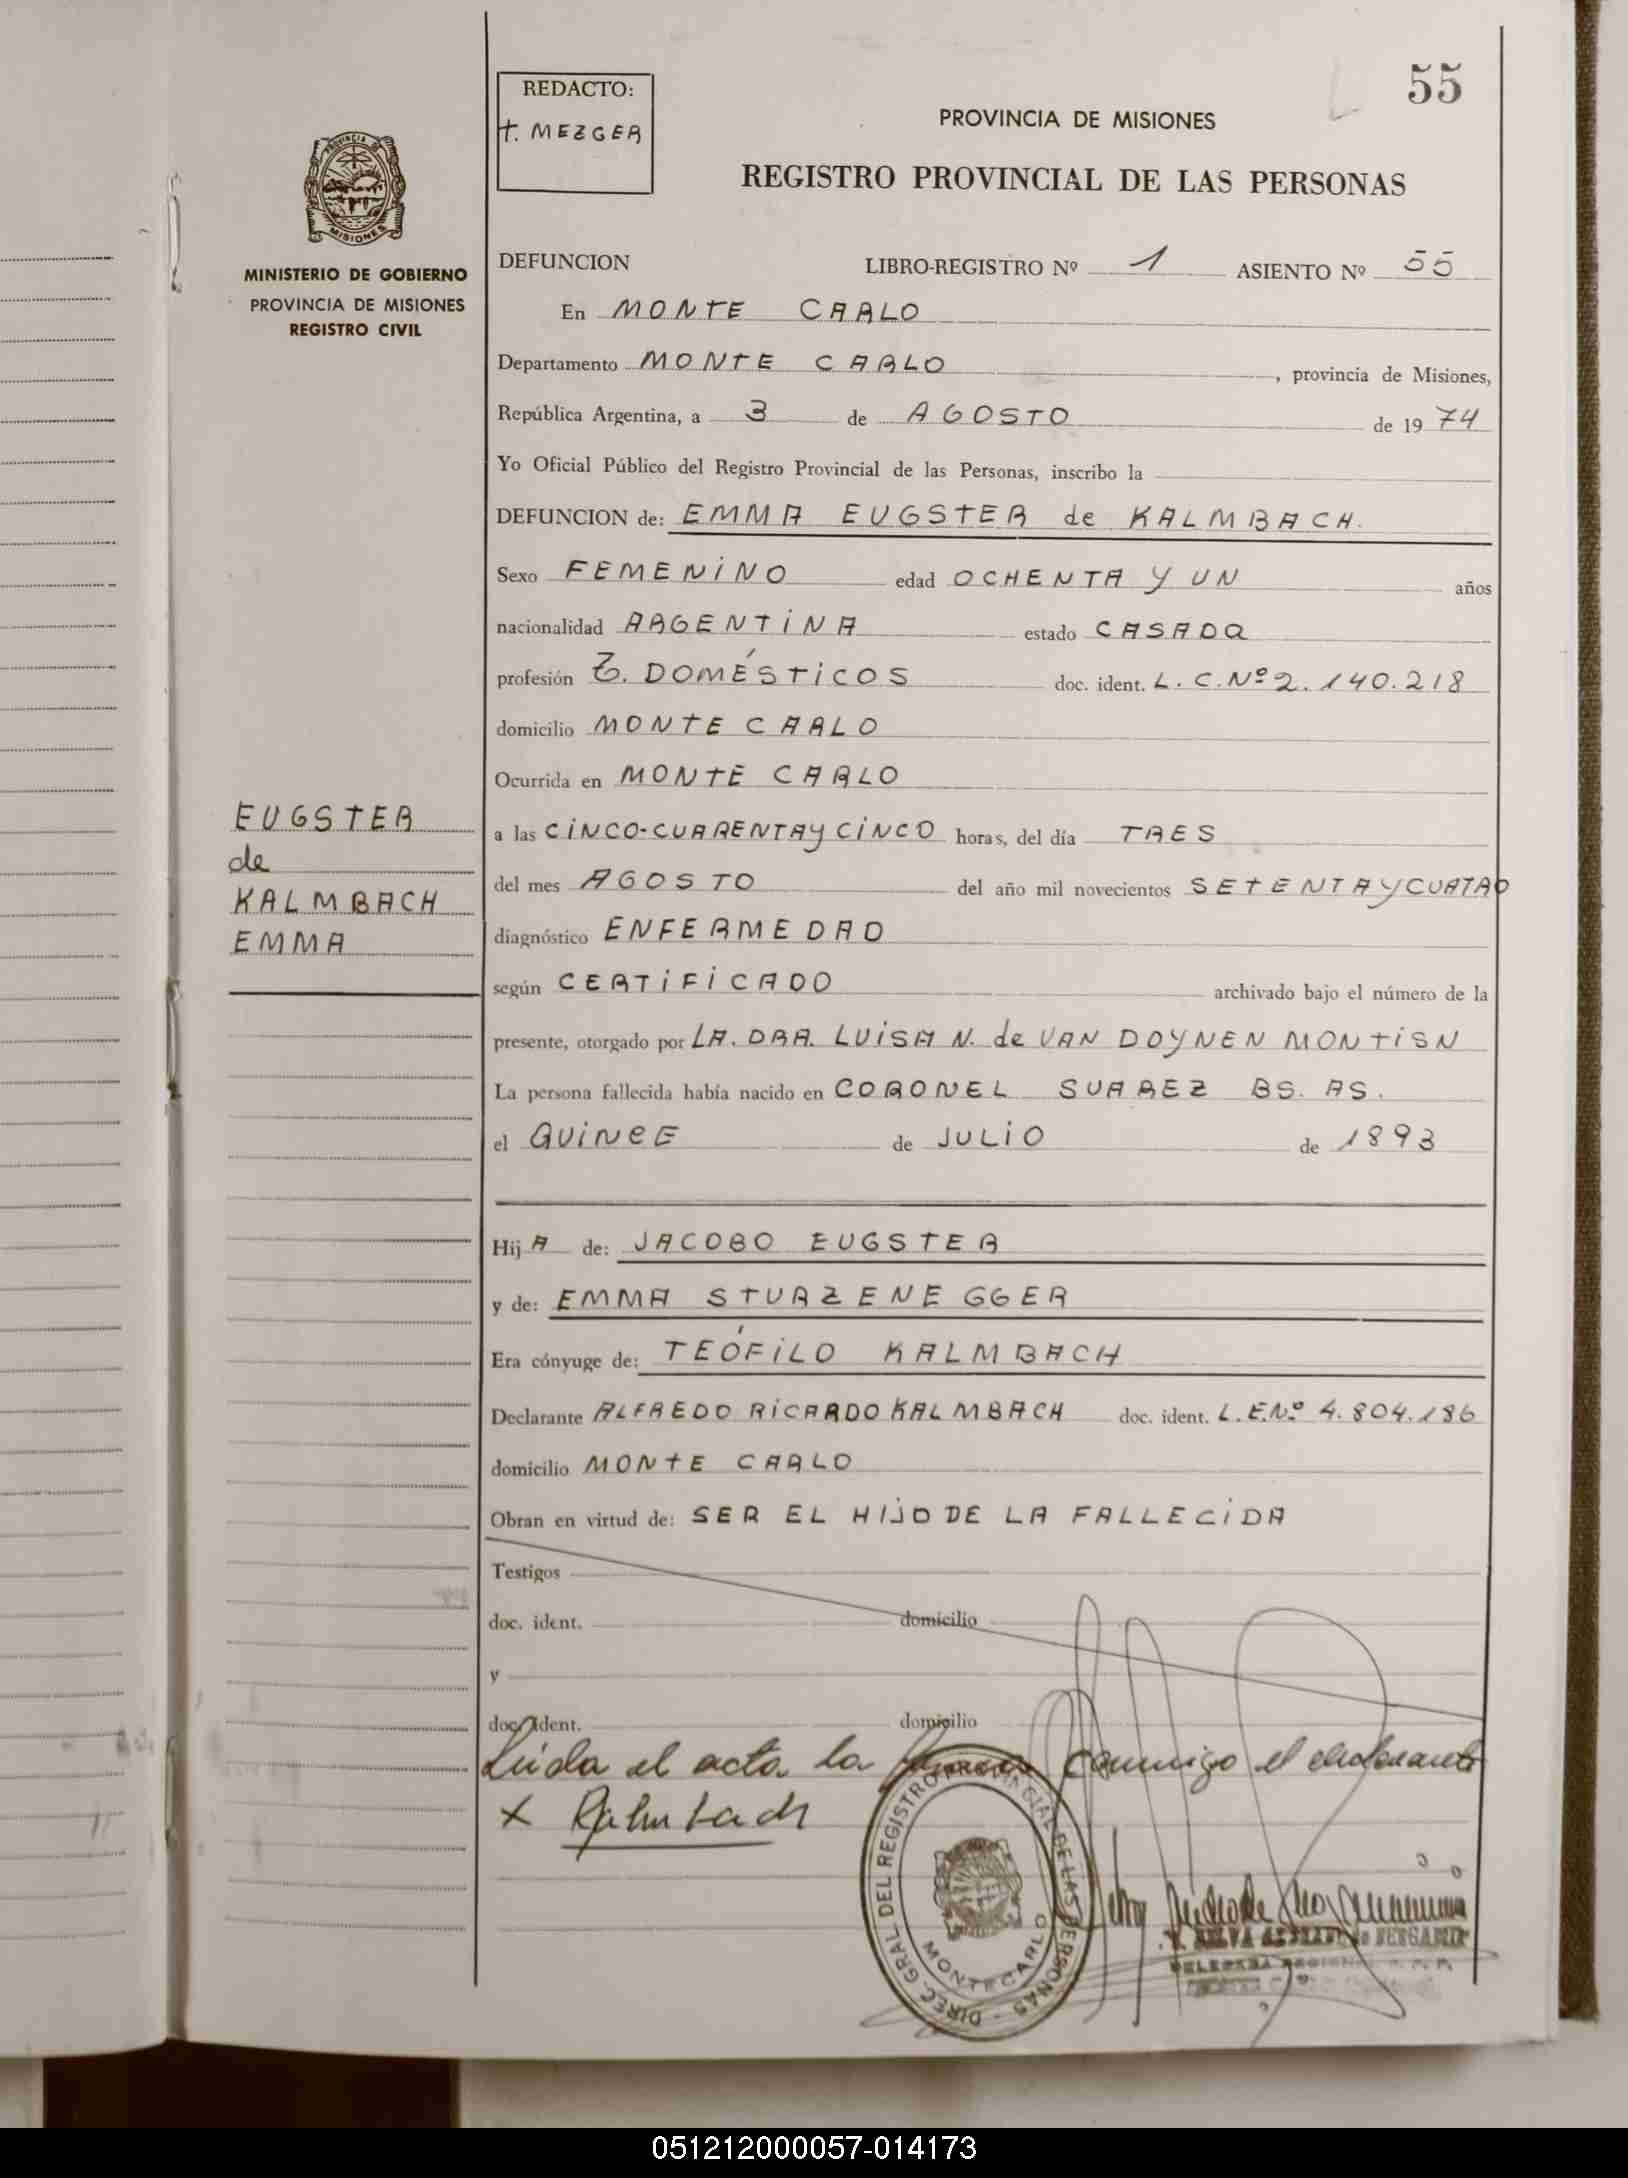 55
REDACTO:
t. MEZGER
PROVINCIA DE MISIONES
REGISTRO PROVINCIAL DE LAS PERSONAS
PROVINCIA DE
MISIONES
MINISTERIO DE GOBIERNO
PROVINCIA DE MISIONES
REGISTRO CIVIL
DEFUNCION LIBRO-REGISTRO Nº 1 ASIENTO Nº 55
En MONTE CARLO
Departamento MONTE CARLO, provincia de Misiones,
República Argentina, a 3 de AGOSTO de 1974
Yo Oficial Público del Registro Provincial de las Personas, inscribo la
DEFUNCION de: EMMA EUGSTER de KALMBACH.
Sexo FEMENINO edad OCHENTA Y UN años
nacionalidad ARGENTINA estado CASADA
profesión Q. DOMÉSTICOS doc. ident. L. C. Nº 2.140.218
domicilio MONTE CARLO
Ocurrida en MONTE CARLO
a las CINCO-CUARENTA Y CINCO horas, del día TRES
del mes AGOSTO del año mil novecientos SETENTA Y CUATRO
diagnóstico ENFERMEDAD
según CERTIFICADO archivado bajo el número de la
presente, otorgado por LA. DRA. LUISA N. de VAN DOYNEN MONTISN
La persona fallecida había nacido en CORONEL SUAREZ BS. AS.
el QUINCE de JULIO de 1893
EUGSTER
de
KALMBACH
EMMA
HijA de: JACOBO EUGSTER
y de: EMMA STURZENEGGER
Era cónyuge de: TEÓFILO KALMBACH
Declarante ALFREDO RICARDO KALMBACH doc. ident. L.E.Nº 4.804.186
domicilio MONTE CARLO
Obran en virtud de: SER EL HIJO DE LA FALLECIDA
Testigos
doc. ident. domicilio
y
doc. ident. domicilio
Leída el acta la conmigo el declarante
X Kalmbach
DIREC. GRAL DEL REGISTRO PROVINCIAL DE LAS PERSONAS
MONTECARLO
051212000057-014173